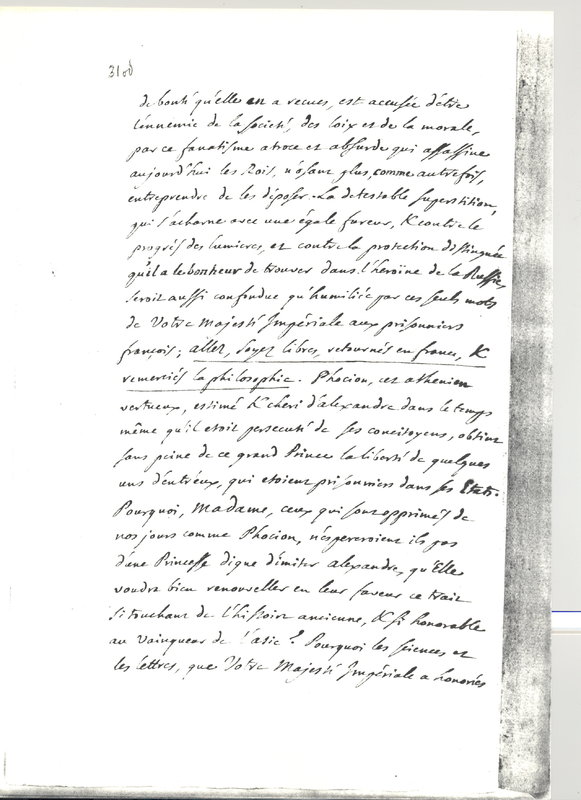 de bonté qu'elle en a recues, est accusée d'être
l'ennemie de la Societé, des loix et de la morale,
par ce fanatisme atroce et absurde qui assassine
aujourd'hui les Rois, n'osant plus, comme autrefois,
entreprendre de les déposer. La detestable superstition,
qui s'acharne avec une égale fureur, & contre le
progrès des lumieres, et contre la protection distinguée
qu'il a le bonheur de trouver dans l'heroïne de la Russie,
seroit aussi confondue qu'humiliée par ces seuls mots
de Votre Majesté Impériale aux prisonniers
françois; allez, soyez libres, retournés en france, &
remerciés la philosophie. Phocion, cet athenien
vertueux, estimé & cheri d'alexandre dans le temps
même qu'il etoit persecuté de ses concitoyens, obtint
sans peine de ce grand Prince la liberté de quelques
uns d'entr'eux, qui etoient prisonniers dans ses Etats.
Pourquoi, Madame, ceux qui sont opprimés de
nos jours comme Phocion, n'espereroient ils pas
d'une Princesse digne d'imiter alexandre, qu'Elle
voudra bien renouveller en leur faveur ce trait
si touchant de l'histoire ancienne, & si honorable
au vainqueur de l'asie? Pourquoi les sciences et
les lettres, que Votre Majesté Impériale a honorées